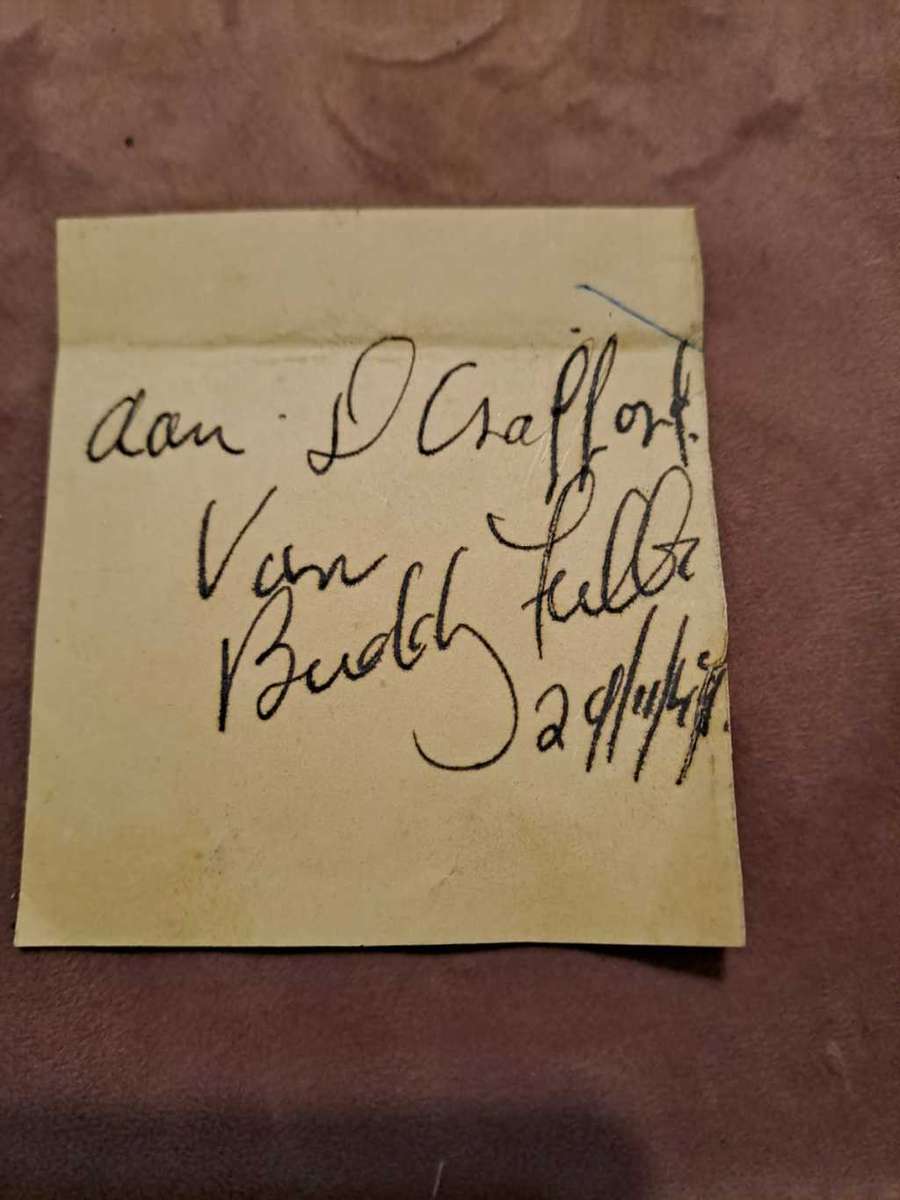 aan D Crafford.
Van
Buddy Fuller
29/11/